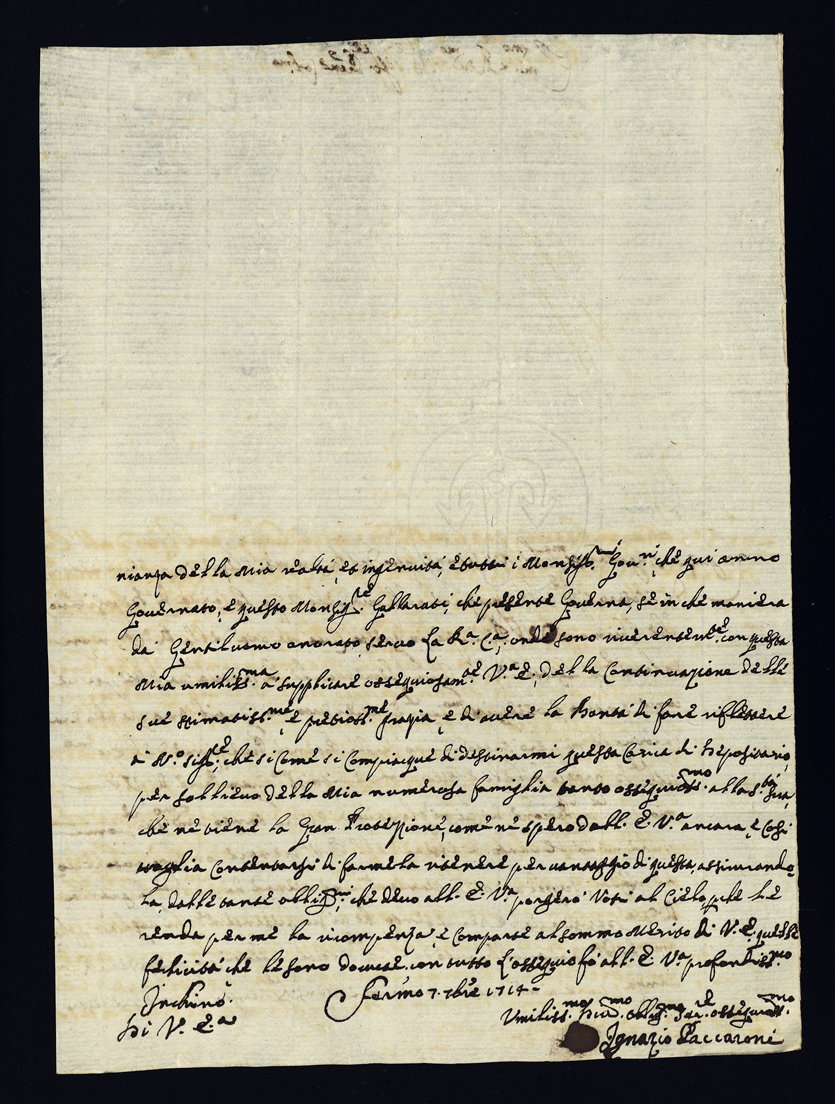 nianza della mia realtà, et ingenuità, e tutti i Monsig.ri Gov.ri, che qui anno
Governato, e questo Monsig.re Gallarati, che presente Governa, sè in che maniera
da Gentiluomo onorato, servo la R.a C.a, onde sono riverentem.te con questa
mia umiliss.ma a supplicare ossequiosam.te V.a E. della Continuazione delle
sue stimatiss.me, e pretioss.me grazie, e di avere la Bontà di fare riflettere
à N.o Sig.re, che si come si Compiacque di destinarmi questa Carica di Depositario,
per sollievo della mia numerosa famiglia tanto ossequios.mo alla S.tà Sua,
che ne tiene la Gran Protezione, come nè spero dall. E. V.a ancora, e Cosi
voglia Contentarsi di farmela ritenere per vantaggio di questa, assicurando-
la, dalle tante obblig.ni, che devo all. E. V.a porgerò Voti al Cielo, pche Le
renda per me la ricompenza e Comparte al sommo Merito di V. E. quelle
felicità che le sono dovute, con tutto l'ossequio fò all. E. V.a profondiss.mo
Inchino.
Fermo 7. 7bre 1714-
Di V. E.a
Umiliss.mo Ossequios.mo
Ignazio Paccaroni